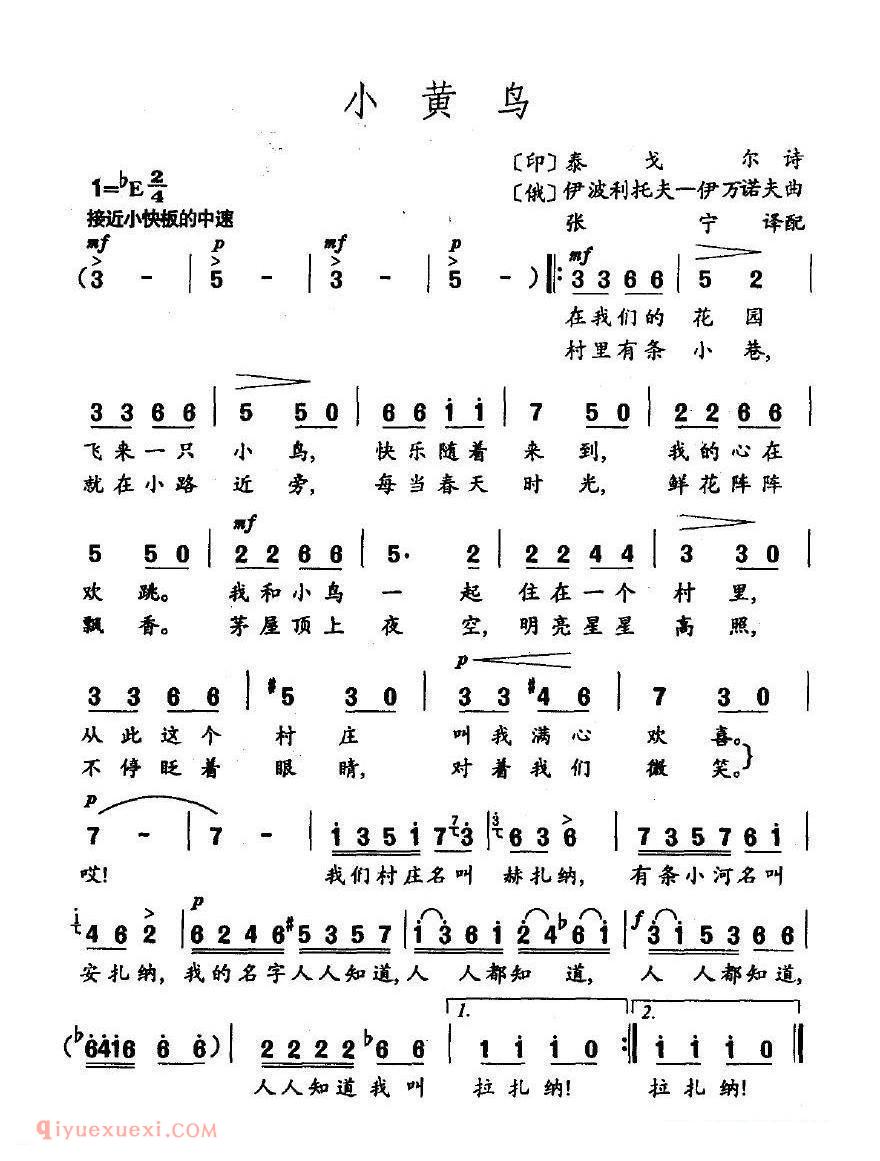 小黄鸟
〔印〕泰戈尔诗
1=♭E 2/4
〔俄〕伊波利托夫—伊万诺夫曲
接近小快板的中速
张宁译配
mf p mf p mf
(3 - | 5 - | 3 - | 5 - ) ‖: 3 3 6 6 | 5 2 |
在我们的花园
村里有条小巷,
3 3 6 6 | 5 5 0 | 6 6 i i | 7 5 0 | 2 2 6 6 |
飞来一只小鸟, 快乐随着来到, 我的心在
就在小路近旁, 每当春天时光, 鲜花阵阵
mf
5 5 0 | 2 2 6 6 | 5· 2 | 2 2 4 4 | 3 3 0 |
欢跳。 我和小鸟一起 住在一个村里,
飘香。 茅屋顶上夜空, 明亮星星高照,
p
3 3 6 6 | #5 3 0 | 3 3 #4 6 | 7 3 0 |
从此这个村庄 叫我满心欢喜。
不停眨着眼睛, 对着我们微笑。}
p
7 - | 7 - | i 3 5 i 7 3 | 6 3 6 | 7 3 5 7 6 i |
哎! 我们村庄名叫 赫扎纳, 有条小河名叫
p f
4 6 2 | 6 2 4 6 #5 3 5 7 | i 3 6 i 2 4 ♭6 i | 3 i 5 3 6 6 |
安扎纳, 我的名字人人知道, 人人都知道, 人人都知道,
1. 2.
(♭6 4 i 6 6 ♭6) | 2 2 2 2 ♭6 6 | i i i 0 :‖ i i i 0 ‖
人人知道我叫 拉扎纳! 拉扎纳!
Qiyuexuexi.com